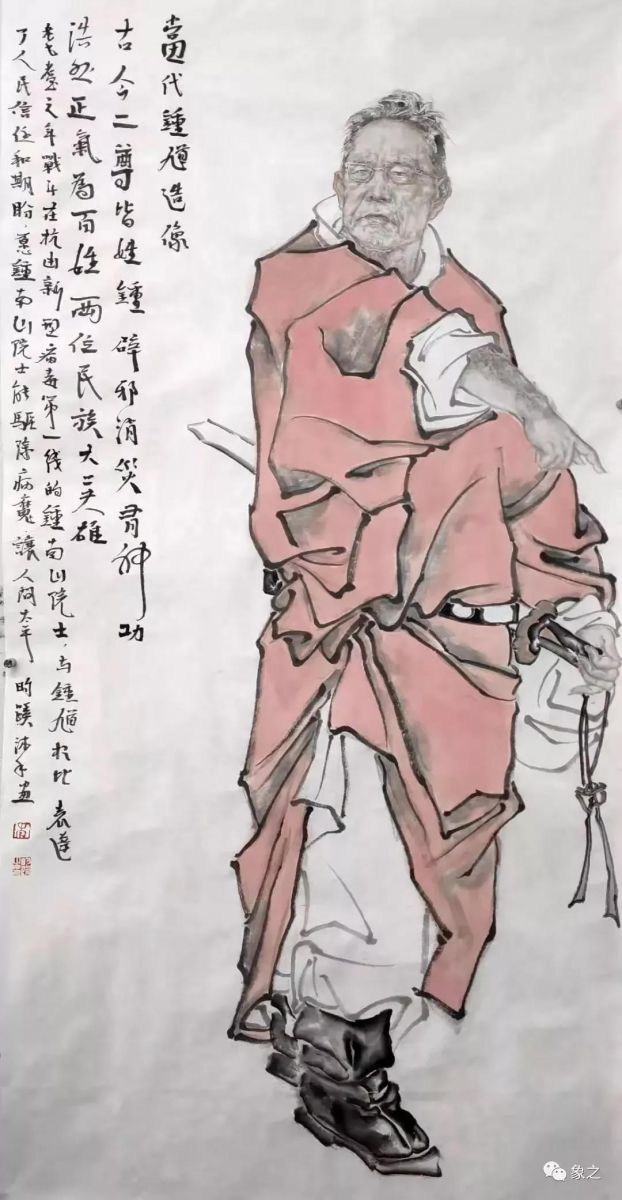 當代鍾馗造像
古今二尊皆姓鍾 辟邪消災有神功
浩然正氣為百姓 兩位民族大英雄
耄耋之年戰斗在抗击新型病毒第一线的鍾南山院士,与鍾馗相比 表達
了人民信任和期盼,愿鍾南山院士能驅除病魔,讓人間太平
画
象之